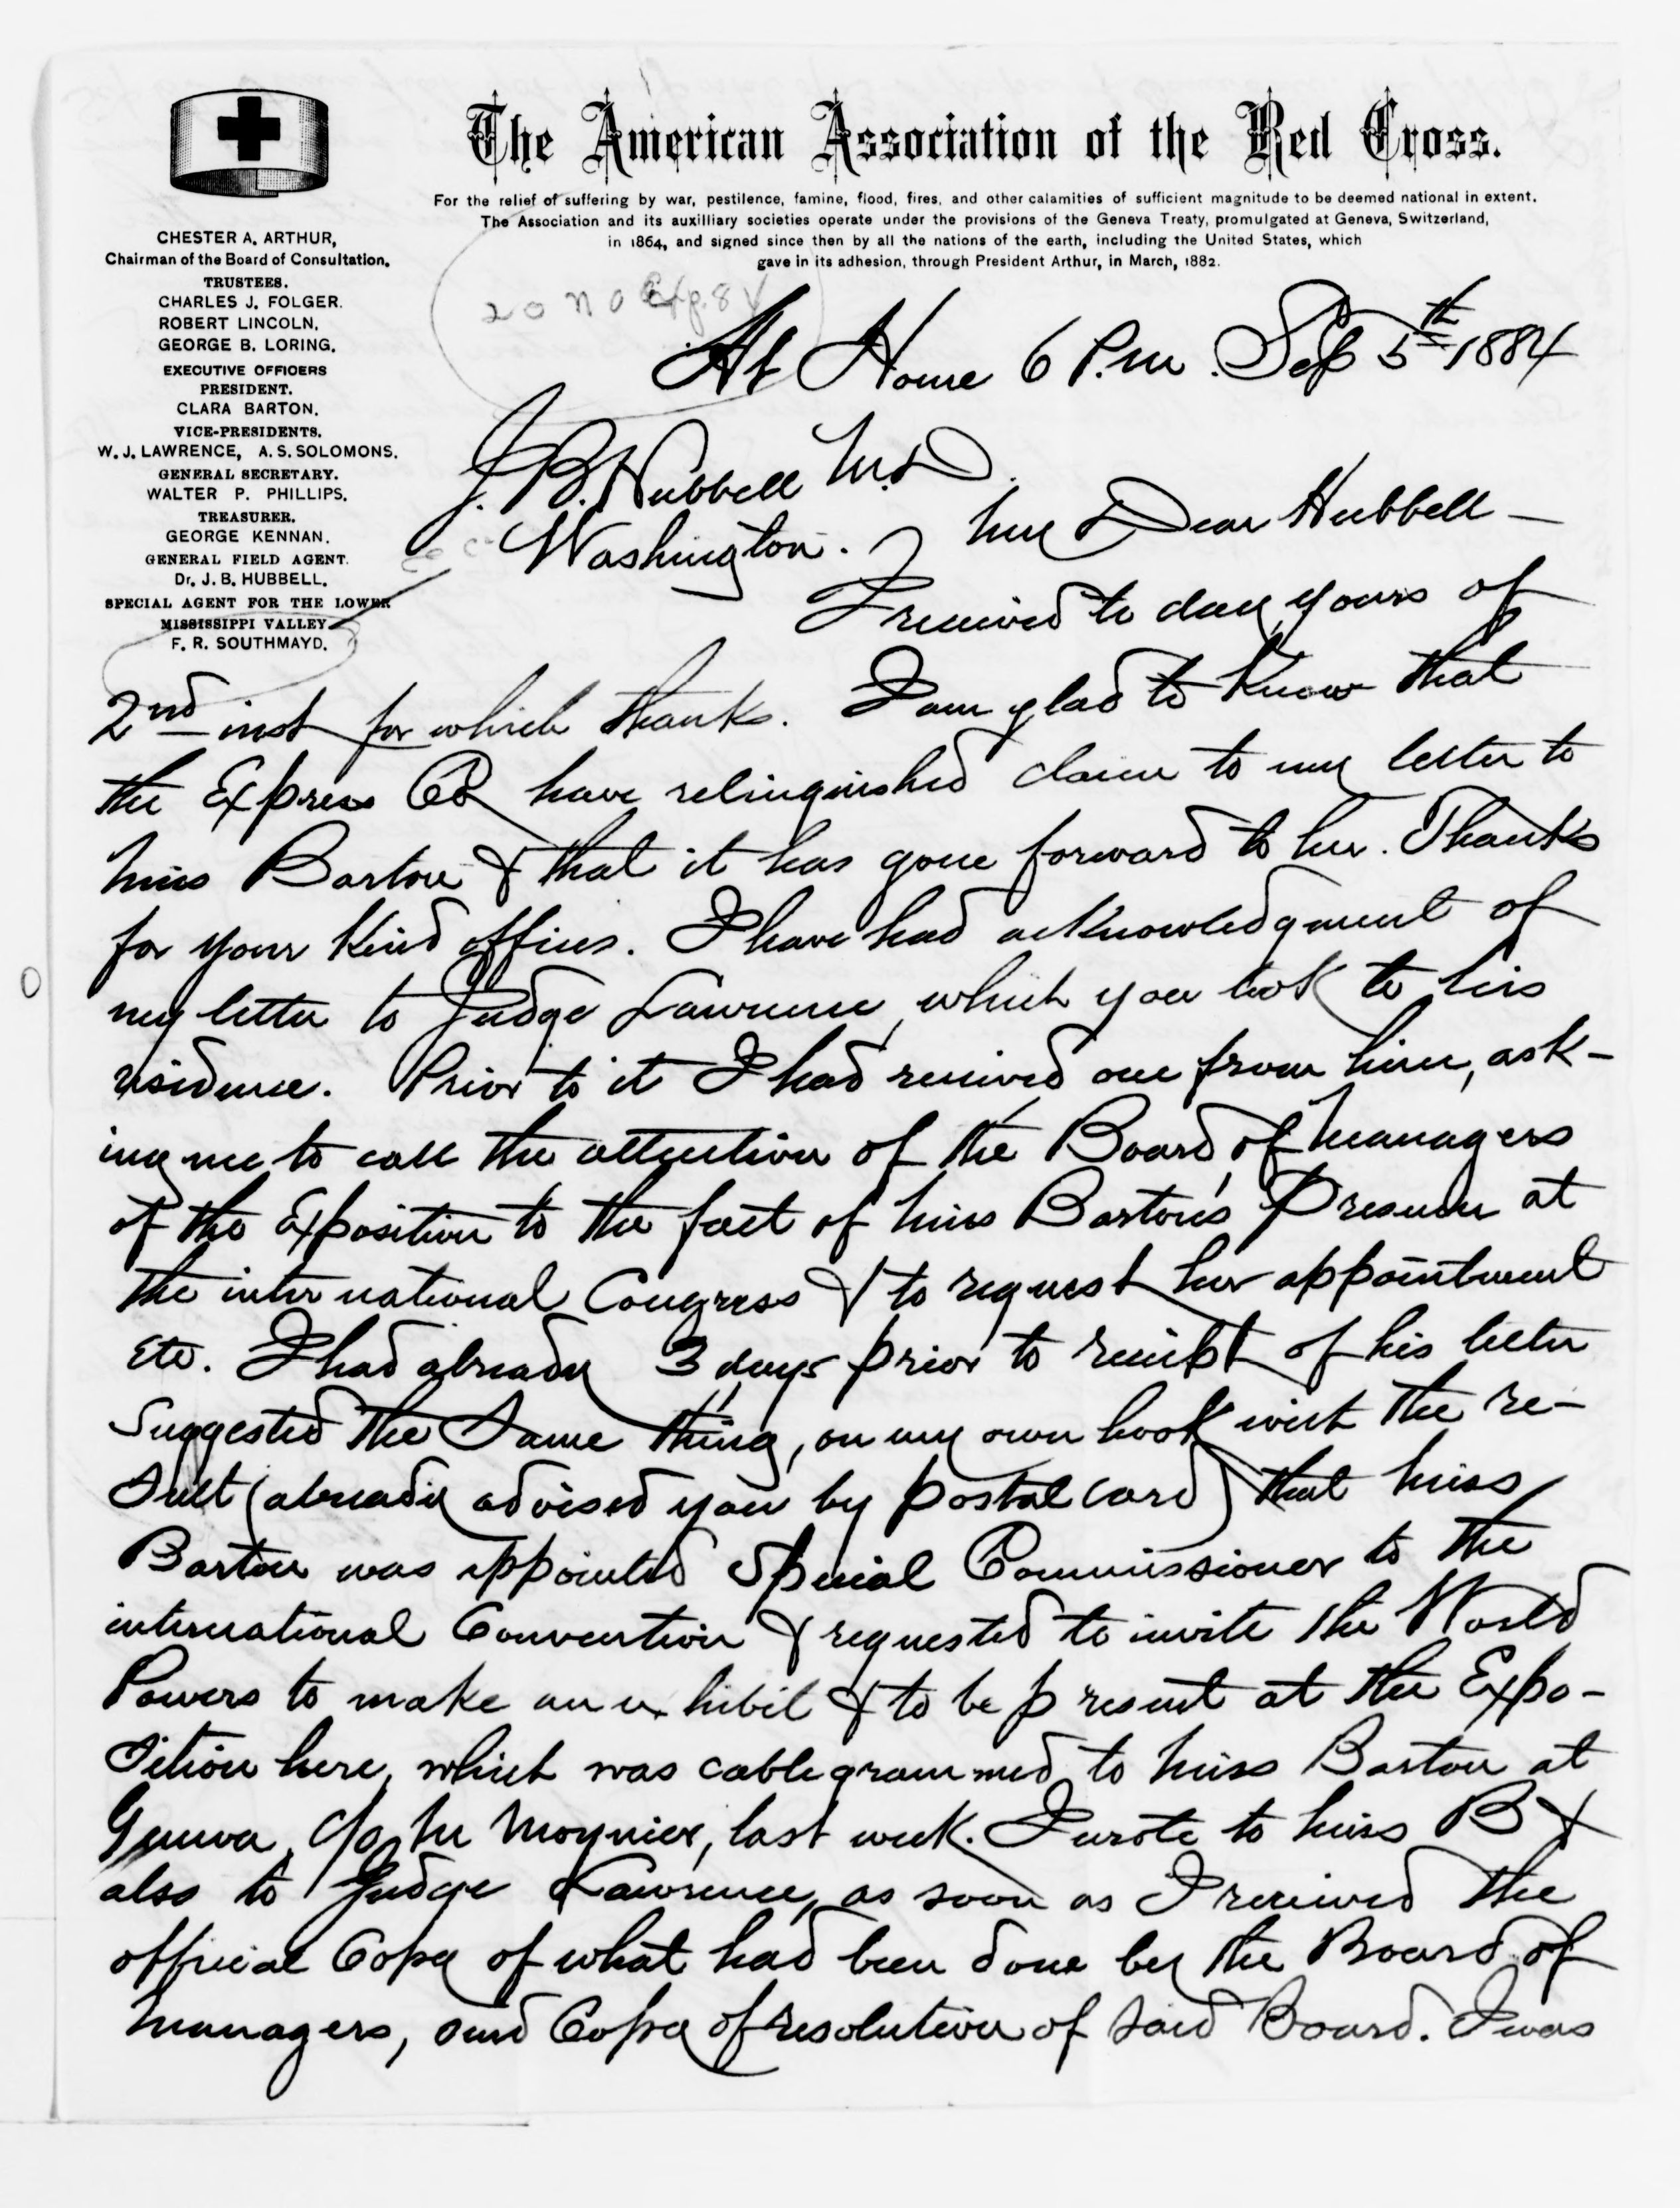 The American Association of the Red Cross.
For the relief of suffering by war, pestilence, famine, flood, fires, and other calamities of sufficient magnitude to be deemed national in extent.
The Association and its auxilliary societies operate under the provisions of the Geneva Treaty, promulgated at Geneva, Switzerland,
in 1864, and signed since then by all the nations of the earth, including the United States, which
gave in its adhesion, through President Arthur, in March, 1882.
CHESTER A. ARTHUR,
Chairman of the Board of Consultation.
TRUSTEES.
CHARLES J. FOLGER.
ROBERT LINCOLN.
GEORGE B. LORING.
EXECUTIVE OFFICERS
PRESIDENT.
CLARA BARTON.
VICE-PRESIDENTS.
W. J. LAWRENCE, A. S. SOLOMONS.
GENERAL SECRETARY.
WALTER P. PHILLIPS.
TREASURER.
GEORGE KENNAN.
GENERAL FIELD AGENT.
Dr. J. B. HUBBELL.
SPECIAL AGENT FOR THE LOWER
MISSISSIPPI VALLEY
F. R. SOUTHMAYD.
At Home 6 P.M. Sep 5th 1884
J. B. Hubbell M.D.
Washington.
My Dear Hubbell —
I received to day yours of
2nd inst for which thanks. I am glad to Know that
the Express Co have relinquished claim to my letter to
Miss Barton & that it has gone forward to her. Thanks
for your Kind offices. I have had acknowledgment of
my letter to Judge Lawrence, which you took to his
residence. Prior to it I had received one from him, ask-
ing me to call the attention of the Board of Managers
of the Exposition to the fact of Miss Barton's Presence at
the international Congress & to request her appointment
etc. I had already 3 days prior to receipt of his letter
Suggested the Same thing, on my own hook with the re-
sult (already advised you by postal card) that Miss
Barton was appointed Special Commissioner to the
international Convention & requested to invite the World
Powers to make an exhibit & to be present at the Expo-
sition here, which was cablegrammed to Miss Barton at
Geneva, c/o Mr Moynier, last week. I wrote to Miss B &
also to Judge Lawrence, as soon as I received the
official Copy of what had been done by the Board of
Managers, and Copy of resolution of said Board. I was